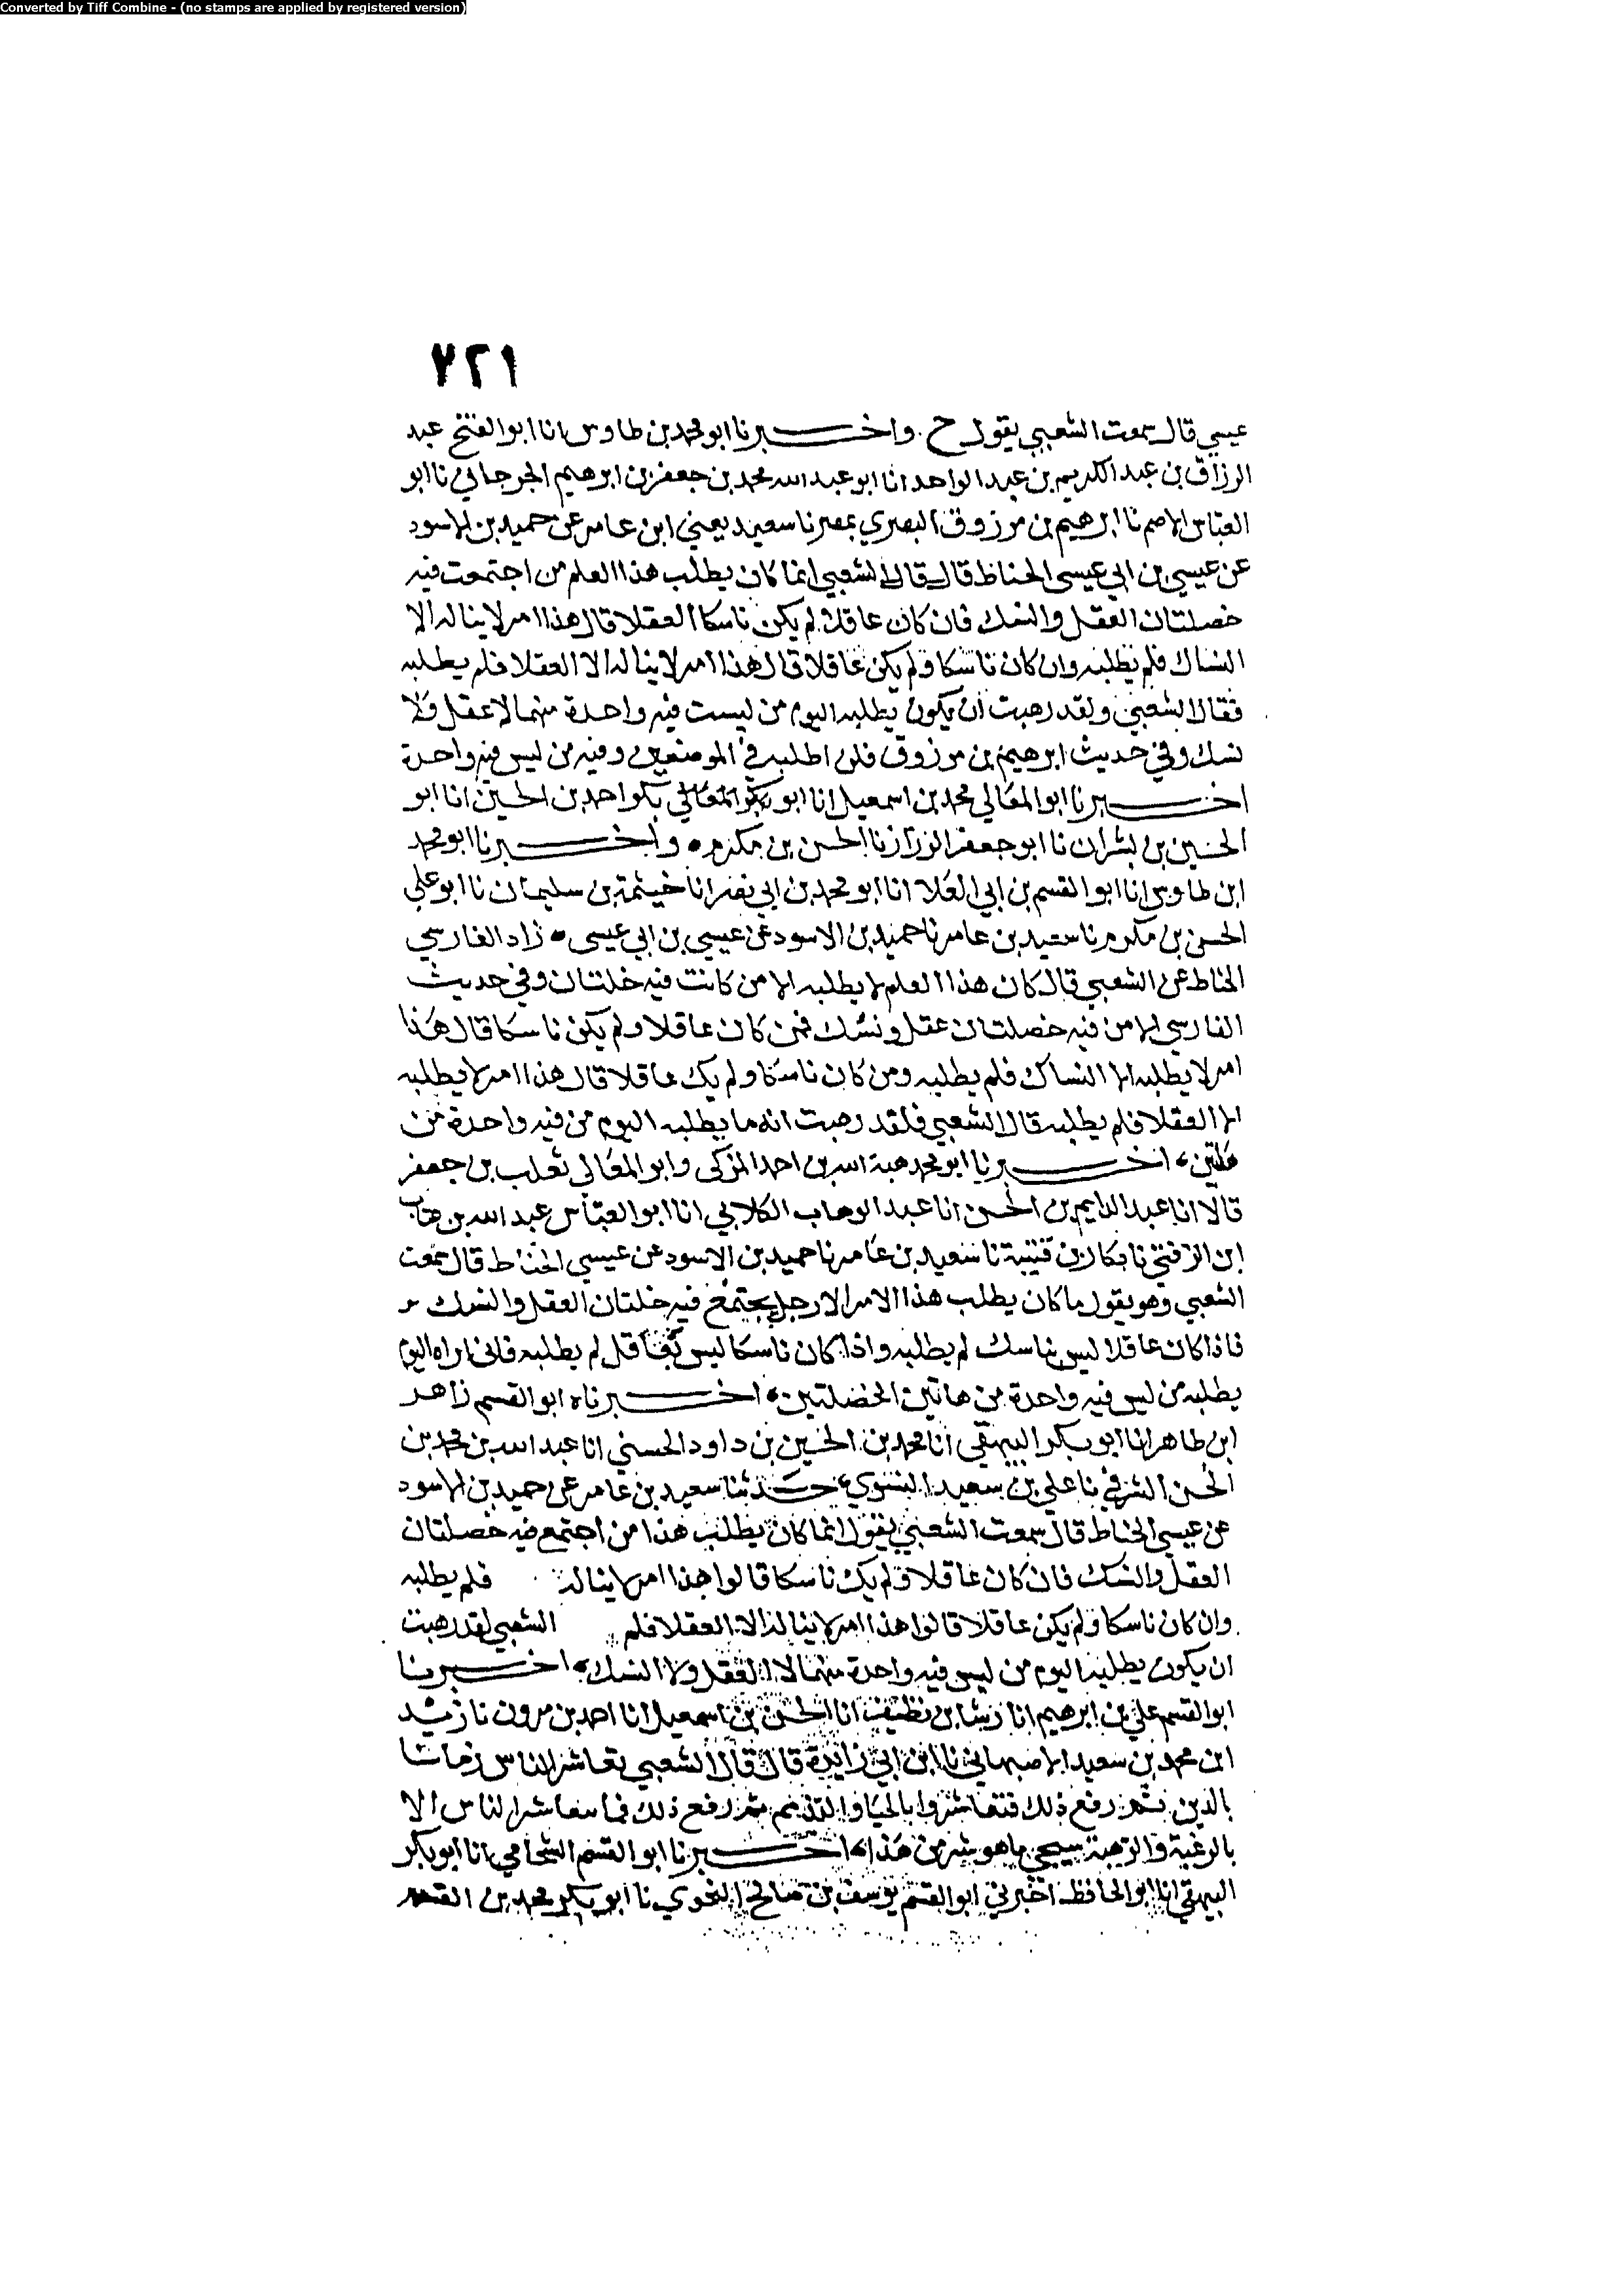 Converted by Tiff Combine - (no stamps are applied by registered version)
٧٢١
عيسى قال سمعت الشعبي يقول ح . واخبرنا ابو محمد بن طاوس انا ابو الفتح عبد
الرزاق بن عبد الكريم بن عبد الواحد انا ابو عبد الله محمد بن جعفر بن ابرهيم الجرجاني نا ابو
العباس الاصم نا ابرهيم بن مرزوق البصري بمصر نا سعيد يعني ابن عامر عن حميد بن الاسود
عن عيسى بن ابي عيسى الحناط قال قال الشعبي انما كان يطلب هذا العلم من اجتمعت فيه
خصلتان العقل والنسك فان كان عاقلا ولم يكن ناسكا العقلا قال هذا امر لا يناله الا
النساك فلم يطلبه وان كان ناسكا ولم يكن عاقلا قال هذا امر لا يناله الا العقلا فلم يطلبه
فقال الشعبي ولقد رهبت ان يكون يطلبه اليوم من ليست فيه واحدة منهما لا عقل ولا
نسك وفي حديث ابرهيم بن مرزوق فلن اطلبه في الموضعين وفيه من ليس فيه واحدة
اخبرنا ابو المعالي محمد بن اسمعيل انا ابو بكر احمد بن الحسين انا ابو
الحسين بن بشران نا ابو جعفر الرزاز نا الحسن بن مكرم ه واخبرنا ابو محمد
ابن طاوس انا ابو القسم بن ابي العلا انا ابو محمد بن ابي نصر انا خيثمة بن سليمان نا ابو علي
الحسن بن مكرم نا سعيد بن عامر نا حميد بن الاسود عن عيسى بن ابي عيسى ه زاد الفارسي
الحناط عن الشعبي قال كان هذا العلم لا يطلبه الا من كانت فيه خلتان وفي حديث
الفارسي الا من فيه خصلتان عقل ونسك فمن كان عاقلا ولم يكن ناسكا قال هذا
امر لا يطلبه الا النساك فلم يطلبه ومن كان ناسكا ولم يك عاقلا قال هذا امر لا يطلبه
الا العقلا فلم يطلبه قال الشعبي فلقد رهبت انه ما يطلبه اليوم من فيه واحدة من
اخبرنا ابو محمد هبة الله بن احمد المزكى وابو المعالي ثعلب بن جعفر
قالا انا عبد الدايم بن الحسن انا عبد الوهاب الكلابي انا ابو العباس عبد الله بن عتاب
ابن الزفتي نا بكار بن قتيبة نا سعيد بن عامر نا حميد بن الاسود عن عيسى الحناط قال سمعت
الشعبي وهو يقول ما كان يطلب هذا الامر الا رجل يجتمع فيه خلتان العقل والنسك
فاذا كان عاقلا ليس بناسك لم يطلبه واذا كان ناسكا ليس بعاقل لم يطلبه فاني اراه اليوم
يطلبه من ليس فيه واحدة من هاتين الخصلتين ه اخبرناه ابو القسم زاهر
ابن طاهر انا ابو بكر البيهقي انا محمد بن الحسين بن داود الحسني انا عبد الله بن محمد بن
الحسن الشرقي نا علي بن سعيد النسوي حدثنا سعيد بن عامر عن حميد بن الاسود
عن عيسى الحناط قال سمعت الشعبي يقول انما كان يطلب هذا من اجتمع فيه خصلتان
العقل والنسك فان كان عاقلا ولم يك ناسكا قالوا هذا امر لا يناله فلم يطلبه
وان كان ناسكا ولم يكن عاقلا قالوا هذا امر لا يناله الا العقلا فلم الشعبي لقد رهبت
ان يكون يطلبه اليوم من ليس فيه واحدة منهما لا العقل ولا النسك ه اخبرنا
ابو القسم علي بن ابرهيم انا رشا بن نظيف انا الحسن بن اسمعيل انا احمد بن مرون نا زيد
ابن محمد بن سعيد الاصبهاني نا ابن ابي زايدة قال قال الشعبي تعاشر الناس زمانا
بالدين ثم رفع ذلك فتعاشروا بالحيا والتذمم ثم رفع ذلك فما يتعاشر الناس الا
بالرغبة والرهبة سيجي ما هو شر من هذا ه اخبرنا ابو القسم الشحامي انا ابو بكر
البيهقي انا ابو الحافظ اخبرني ابو القسم يوسف بن صالح النحوي نا ابو بكر محمد بن القسم